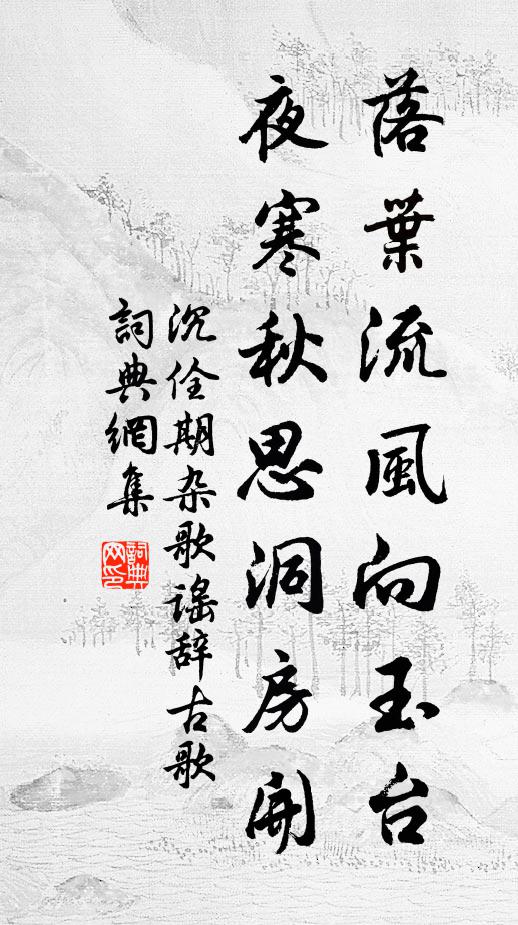 落葉流風向玉台
夜寒秋思洞房開
沉佺期杂歌谣辞古歌
詞典網集
詞典网印